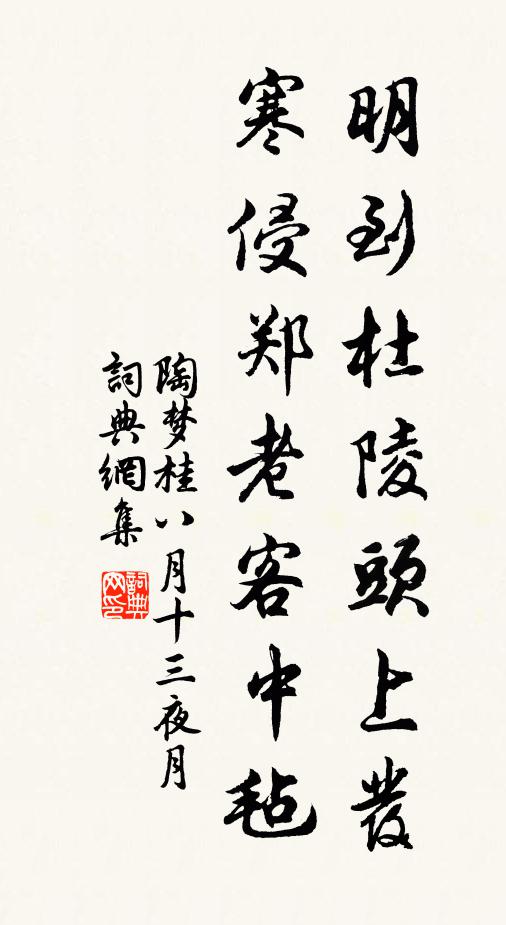 明到杜陵頭上發
寒侵郑老客中毡
陶梦桂八月十三夜月
詞典網集
詞典网印